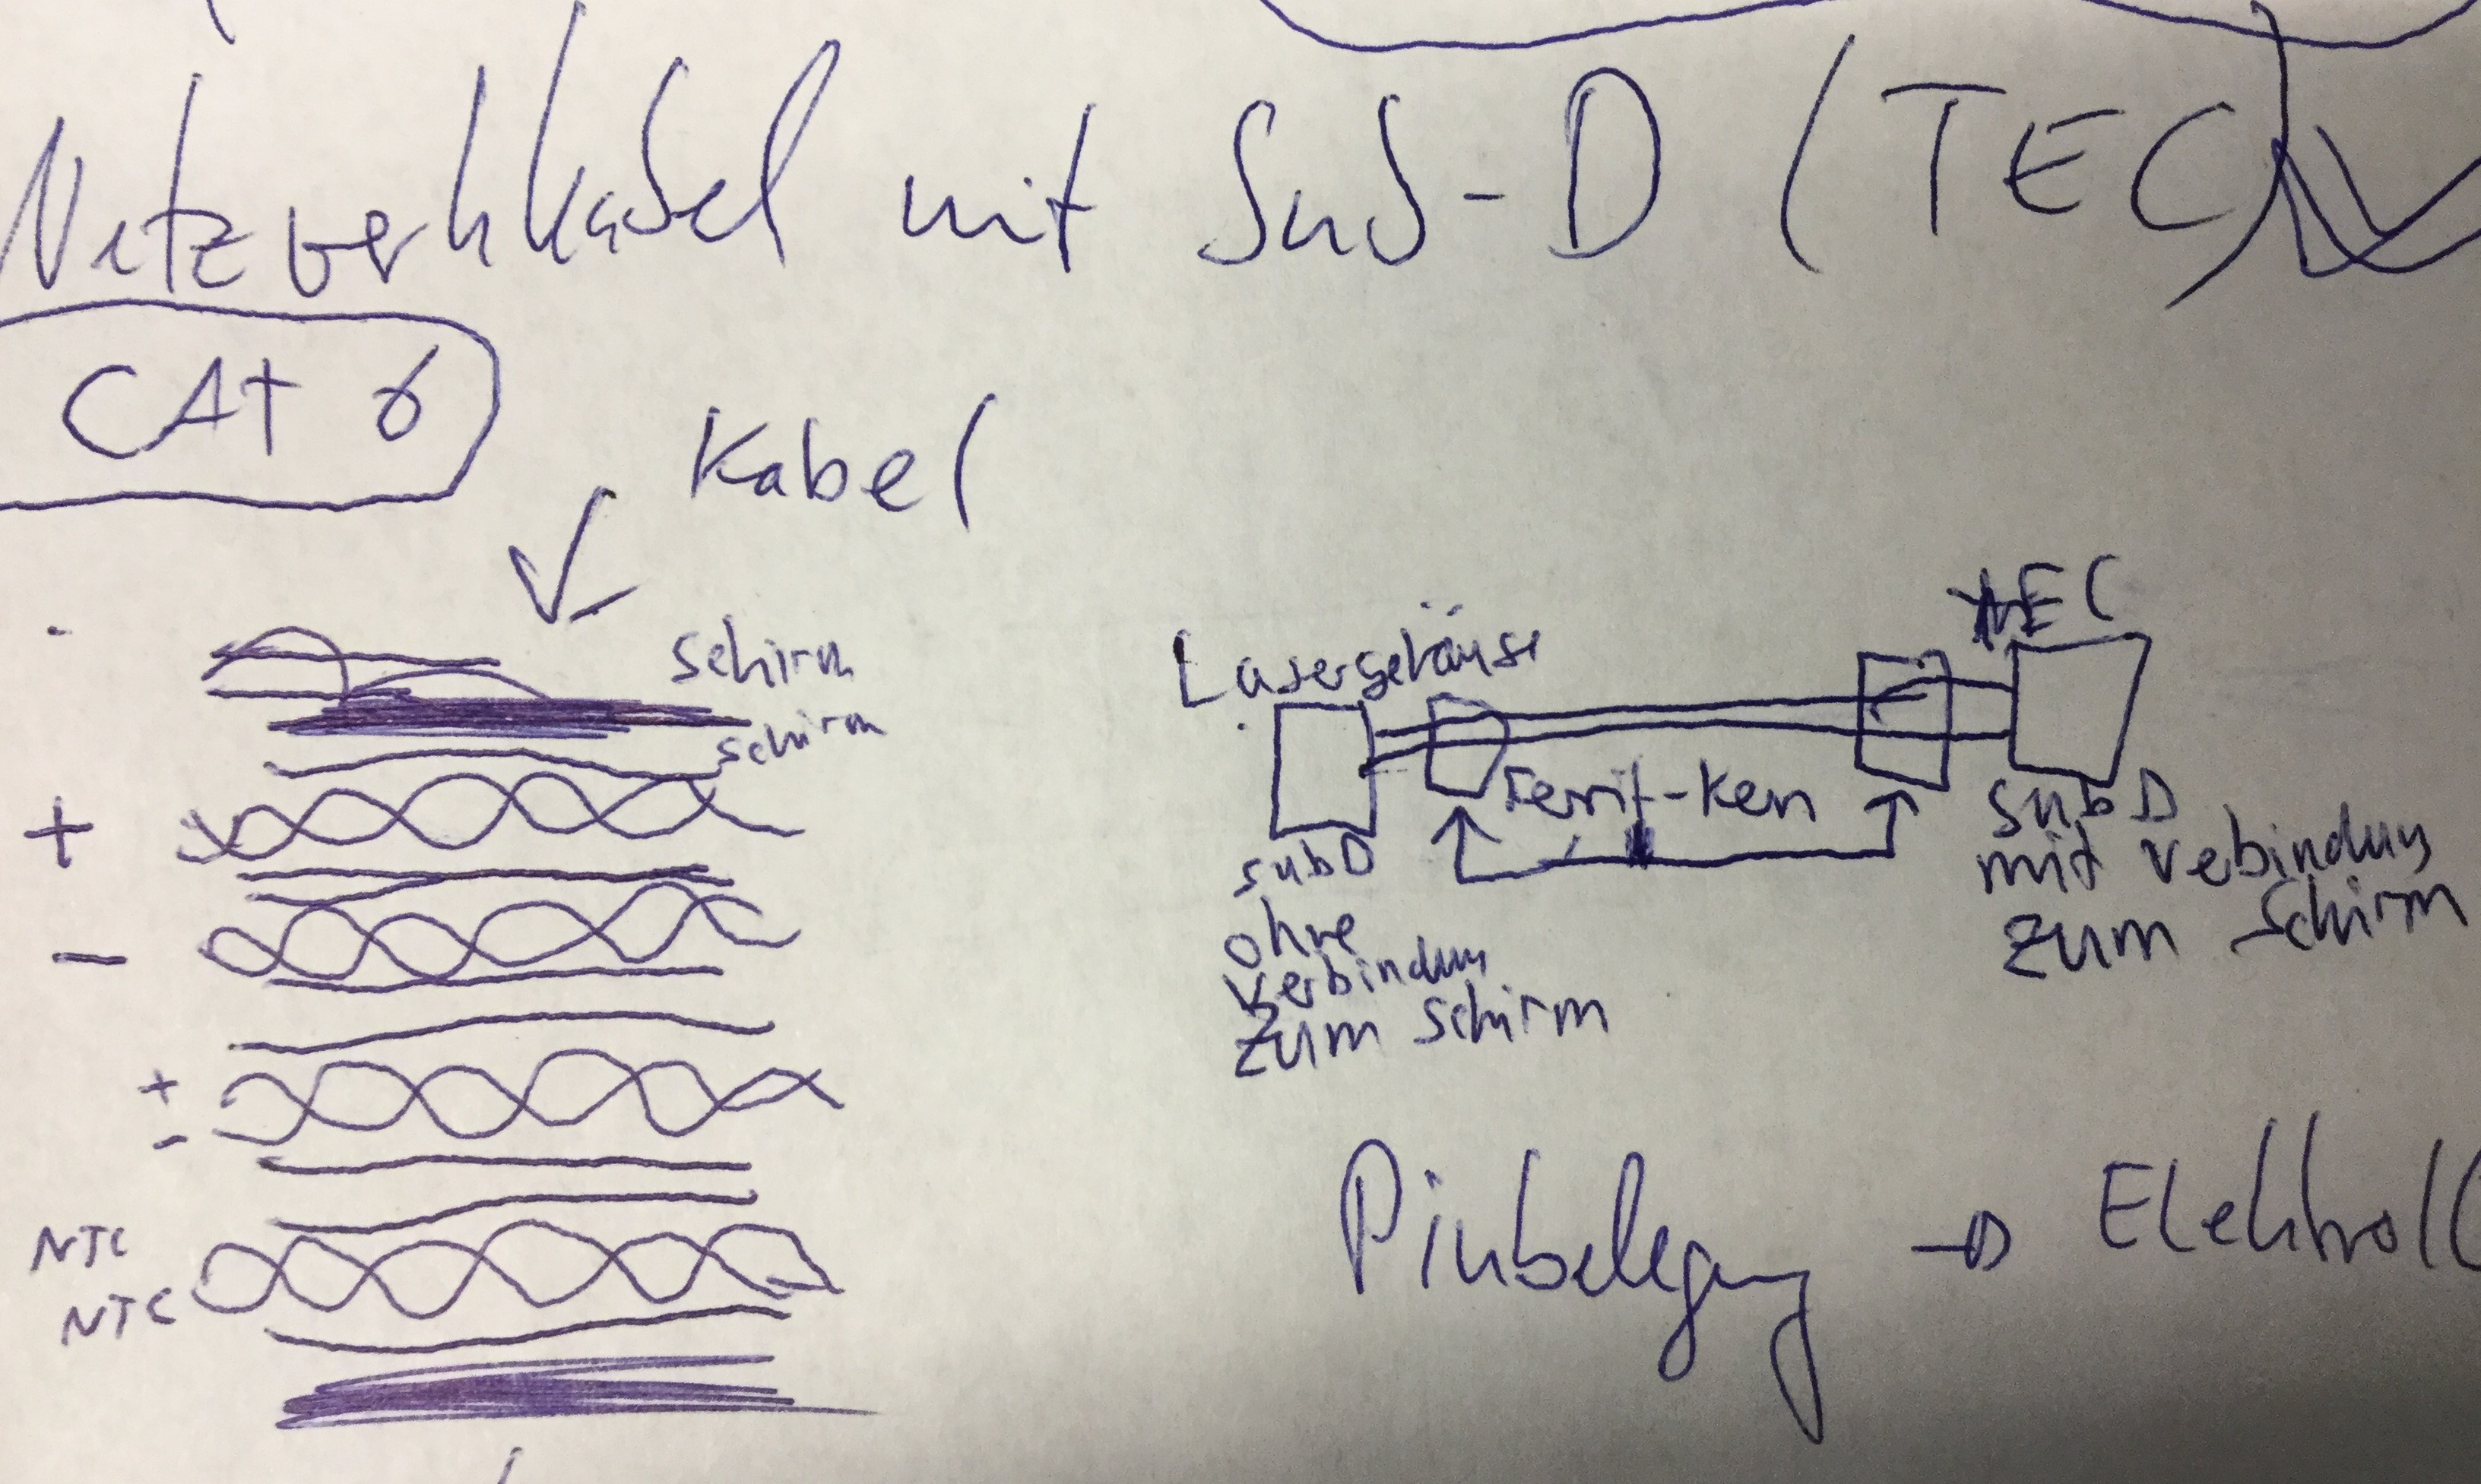 Netzwerkkabel mit Sub-D (TEC)
CAT 6
Kabel
Schirm
Schirm
+
-
+
-
NTC
NTC
Lasergehäuse
TEC
Ferrit-Kern
SubD
ohne
Verbindung
zum Schirm
SubD
mit Verbindung
zum Schirm
Pinbelegung → Elektroll